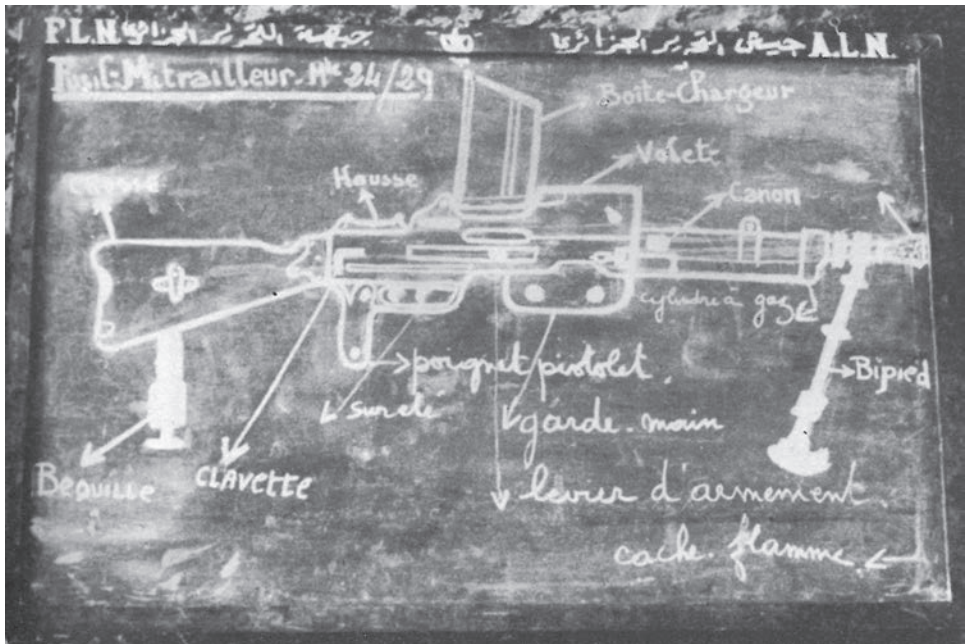 F.L.N. جبهة التحرير الجزائري جيش التحرير الجزائري A.L.N.
Fusil-Mitrailleur. Mle 24/29
Boîte-Chargeur
Volet
Crosse
Housse
Canon
cylindre à gaz
poignet pistolet.
Bipied
sureté
garde-main
Bequille
CLAVETTE
levier d'armement.
cache-flamme